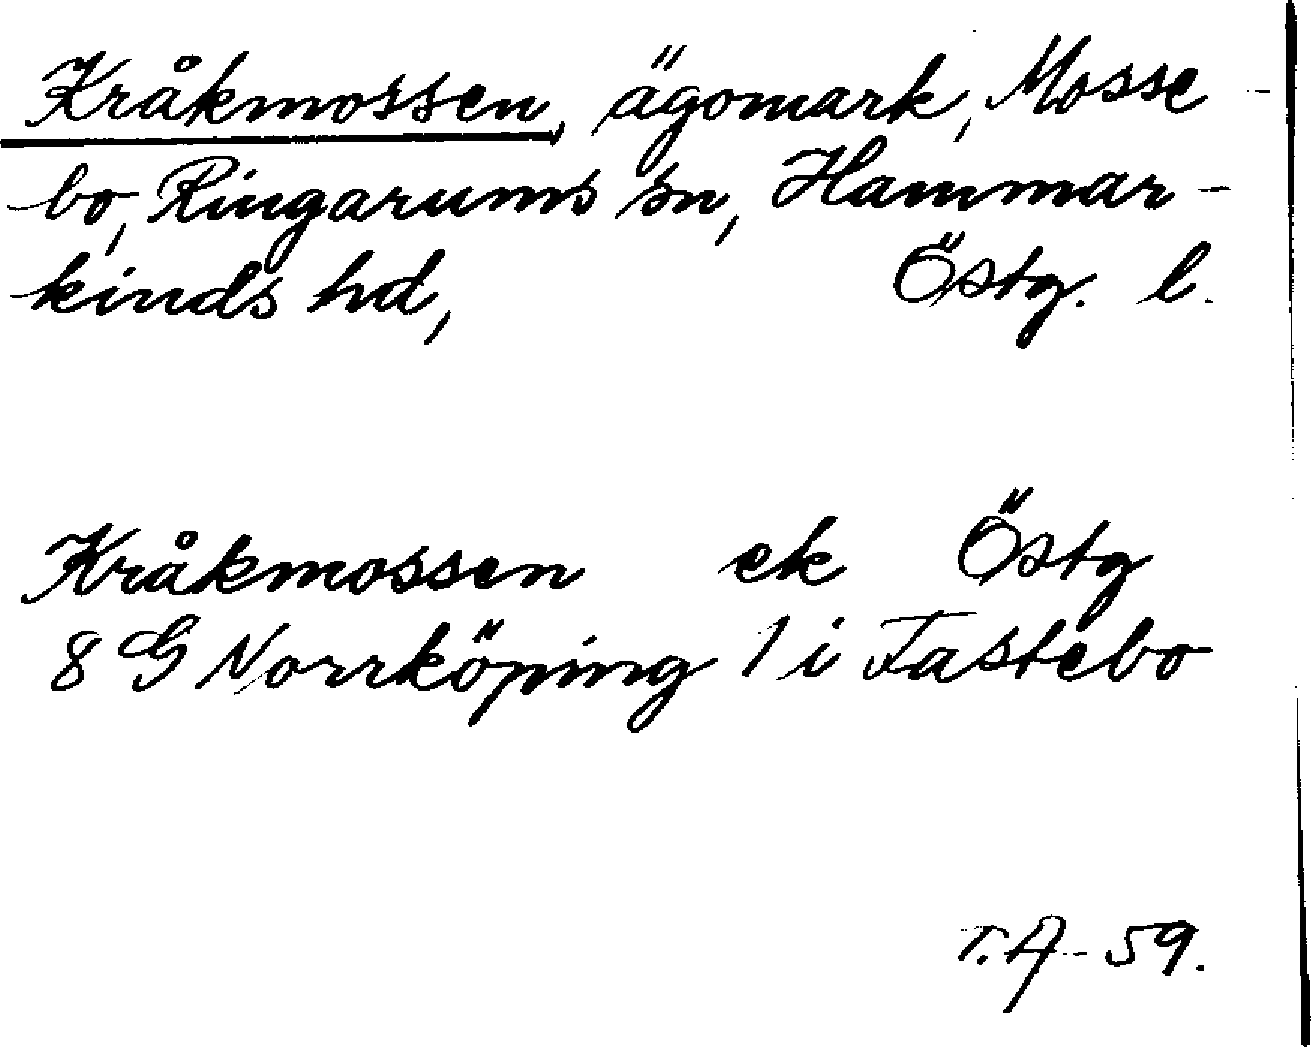 Kråkmossen, ägomark, Mosse-
bo, Ringarums sn, Hammar-
kinds hd, Östg. l.
Kråkmossen ek Östg
8 G Norrköping 1 i Fastebo
T.A - 59.